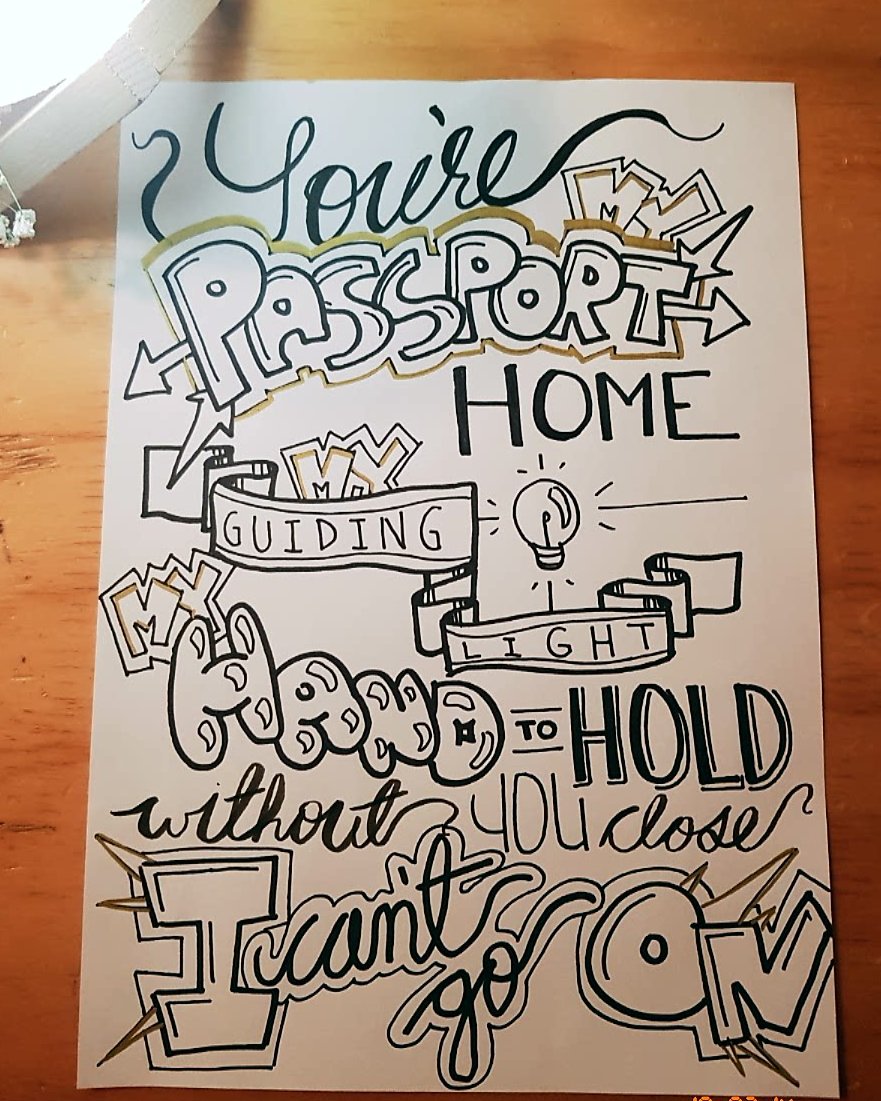 You're MY
PASSPORT
HOME
MY
GUIDING
LIGHT
MY
HAND TO HOLD
without YOU close
I can't go ON